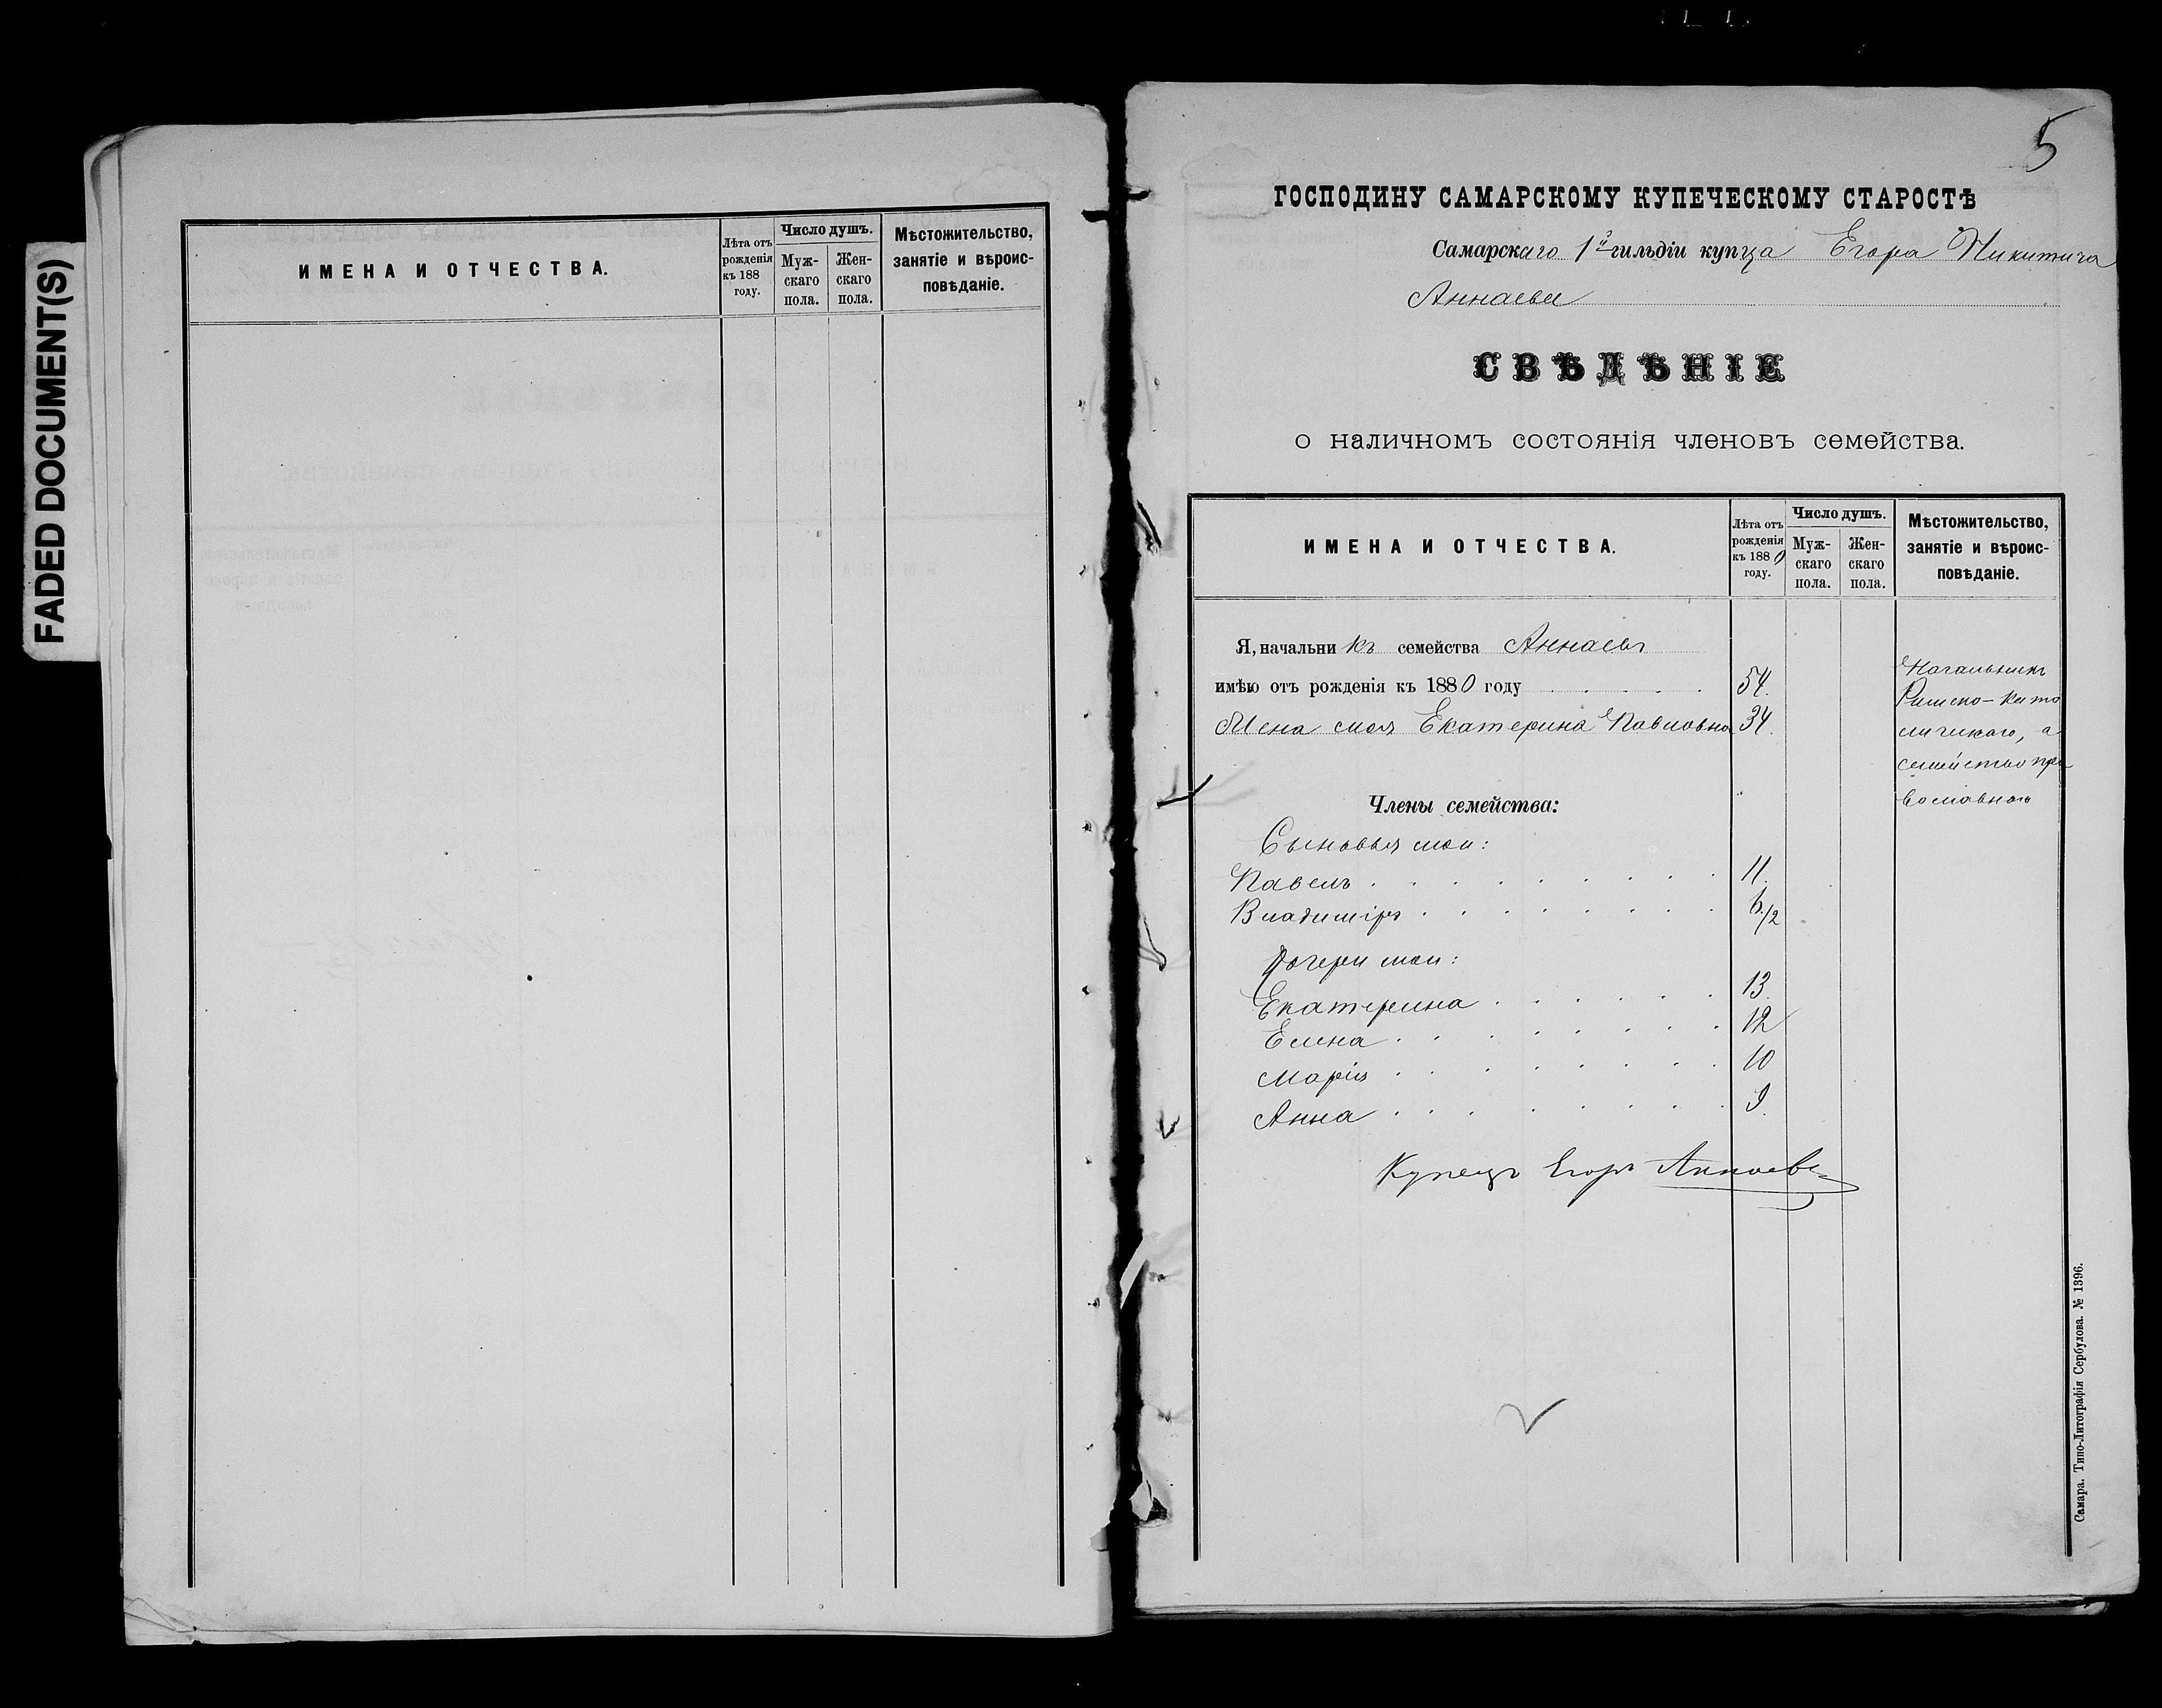 FADED DOCUMENT(S)
ИМЕНА И ОТЧЕСТВА.
Лѣта отъ рожденія къ 188 году.
Число душъ.
Мужскаго пола.
Женскаго пола.
Мѣстожительство,
занятіе и вѣроис-
повѣданіе.
5
ГОСПОДИНУ САМАРСКОМУ КУПЕЧЕСКОМУ СТАРОСТѢ
Самарскаго 1й гильдіи купца Егора Никитича
Аннаева
СВѢДѢНІЕ
о наличномъ состоянія членовъ семейства.
ИМЕНА И ОТЧЕСТВА.
Лѣта отъ
рожденія
къ 1880
году.
Число душъ.
Муж-
скаго
пола.
Жен-
скаго
пола.
Мѣстожительство,
занятіе и вѣроис-
повѣданіе.
Я, начальникъ семейства Аннаевъ
имѣю отъ рожденія къ 1880 году . . . . . 54.
Жена моя Екатерина Павловна 34.
Начальникъ
Римско-като
лическаго, а
семейство пра
вославнаго
Члены семейства:
Сыновья мои:
Павелъ . . . . . . . . . 11.
Владиміръ . . . . . . . . 6 1/2
Дочери мои:
Екатерина . . . . . . 13.
Елена . . . . . . . . 12
Марія . . . . . . . . 10
Анна . . . . . . . . . 9.
Купецъ Егоръ Аннаевъ
Самара. Типо-Литографія Сербулова. № 1396.